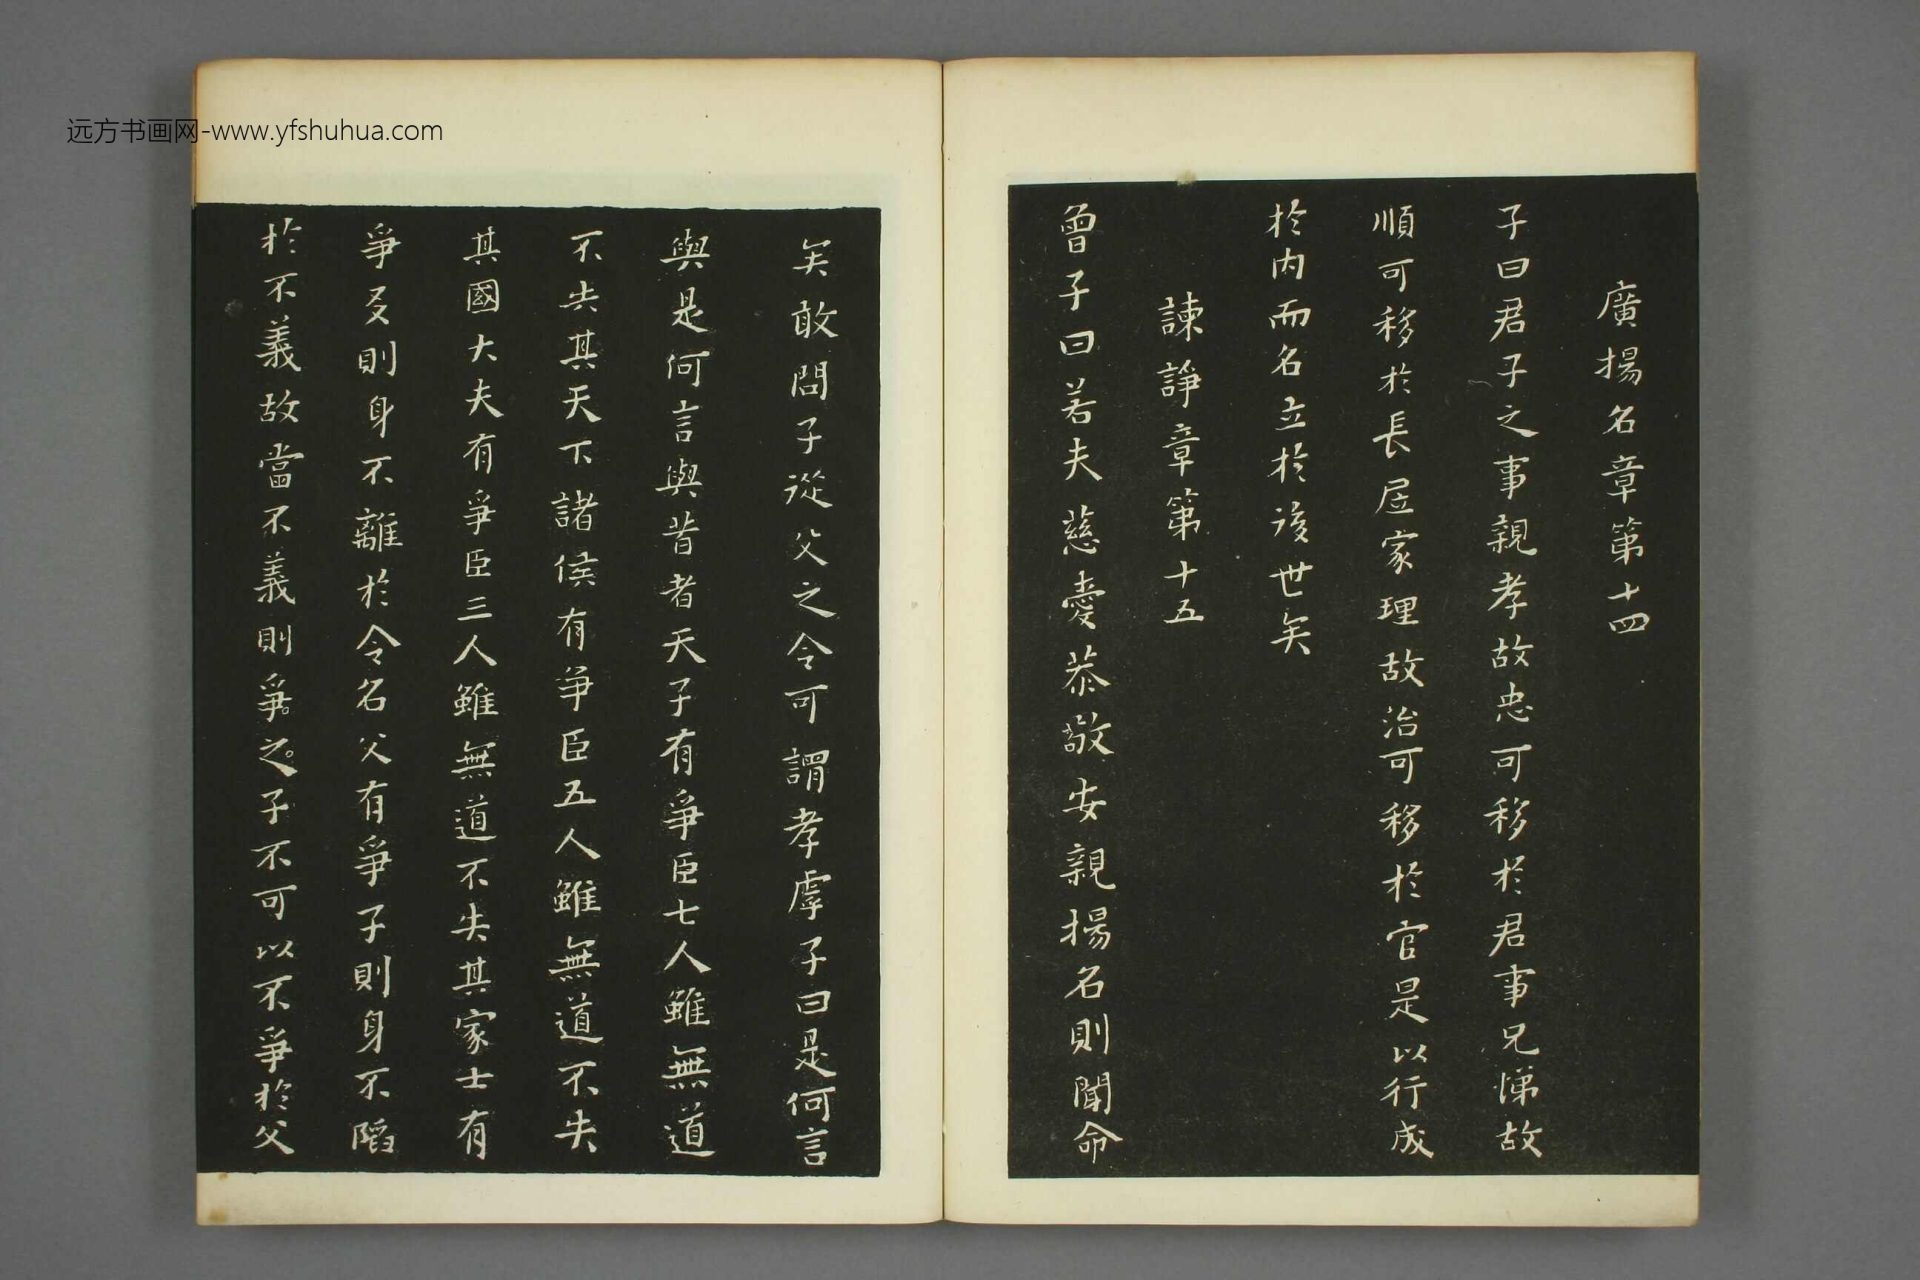 远方书画网-www.yfshuhua.com
廣揚名章第十四
子曰君子之事親孝故忠可移於君事兄悌故
順可移於長居家理故治可移於官是以行成
於内而名立於後世矣
諫諍章第十五
曾子曰若夫慈愛恭敬安親揚名則聞命
矣敢問子從父之令可謂孝虖子曰是何言
與是何言與昔者天子有爭臣七人雖無道
不失其天下諸侯有爭臣五人雖無道不失
其國大夫有爭臣三人雖無道不失其家士有
爭友則身不離於令名父有爭子則身不陷
於不義故當不義則爭之子不可以不爭於父